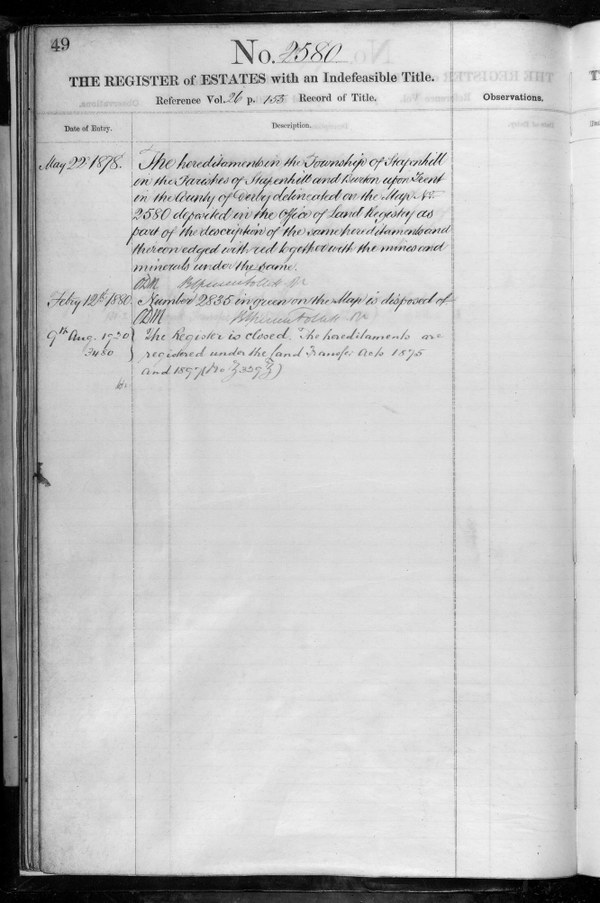 49
No. 2580
THE REGISTER of ESTATES with an Indefeasible Title.
Reference Vol. 26 p. 153 Record of Title.
Observations.
Date of Entry.
Description.
May 22 1878. The hereditaments in the Township of Stapenhill
in the Parishes of Stapenhill and Burton upon Trent
in the County of Derby delineated on the Map No.
2580 deposited in the Office of Land Registry as
part of the description of the same hereditaments and
thereon edged with red together with the mines and
minerals under the same.
Feby 12th 1880. Number 2835 in green on the Map is disposed of
9th Aug. 1930 The Register is closed. The hereditaments are
3480 registered under the Land Transfer Acts 1875
and 1897 (No